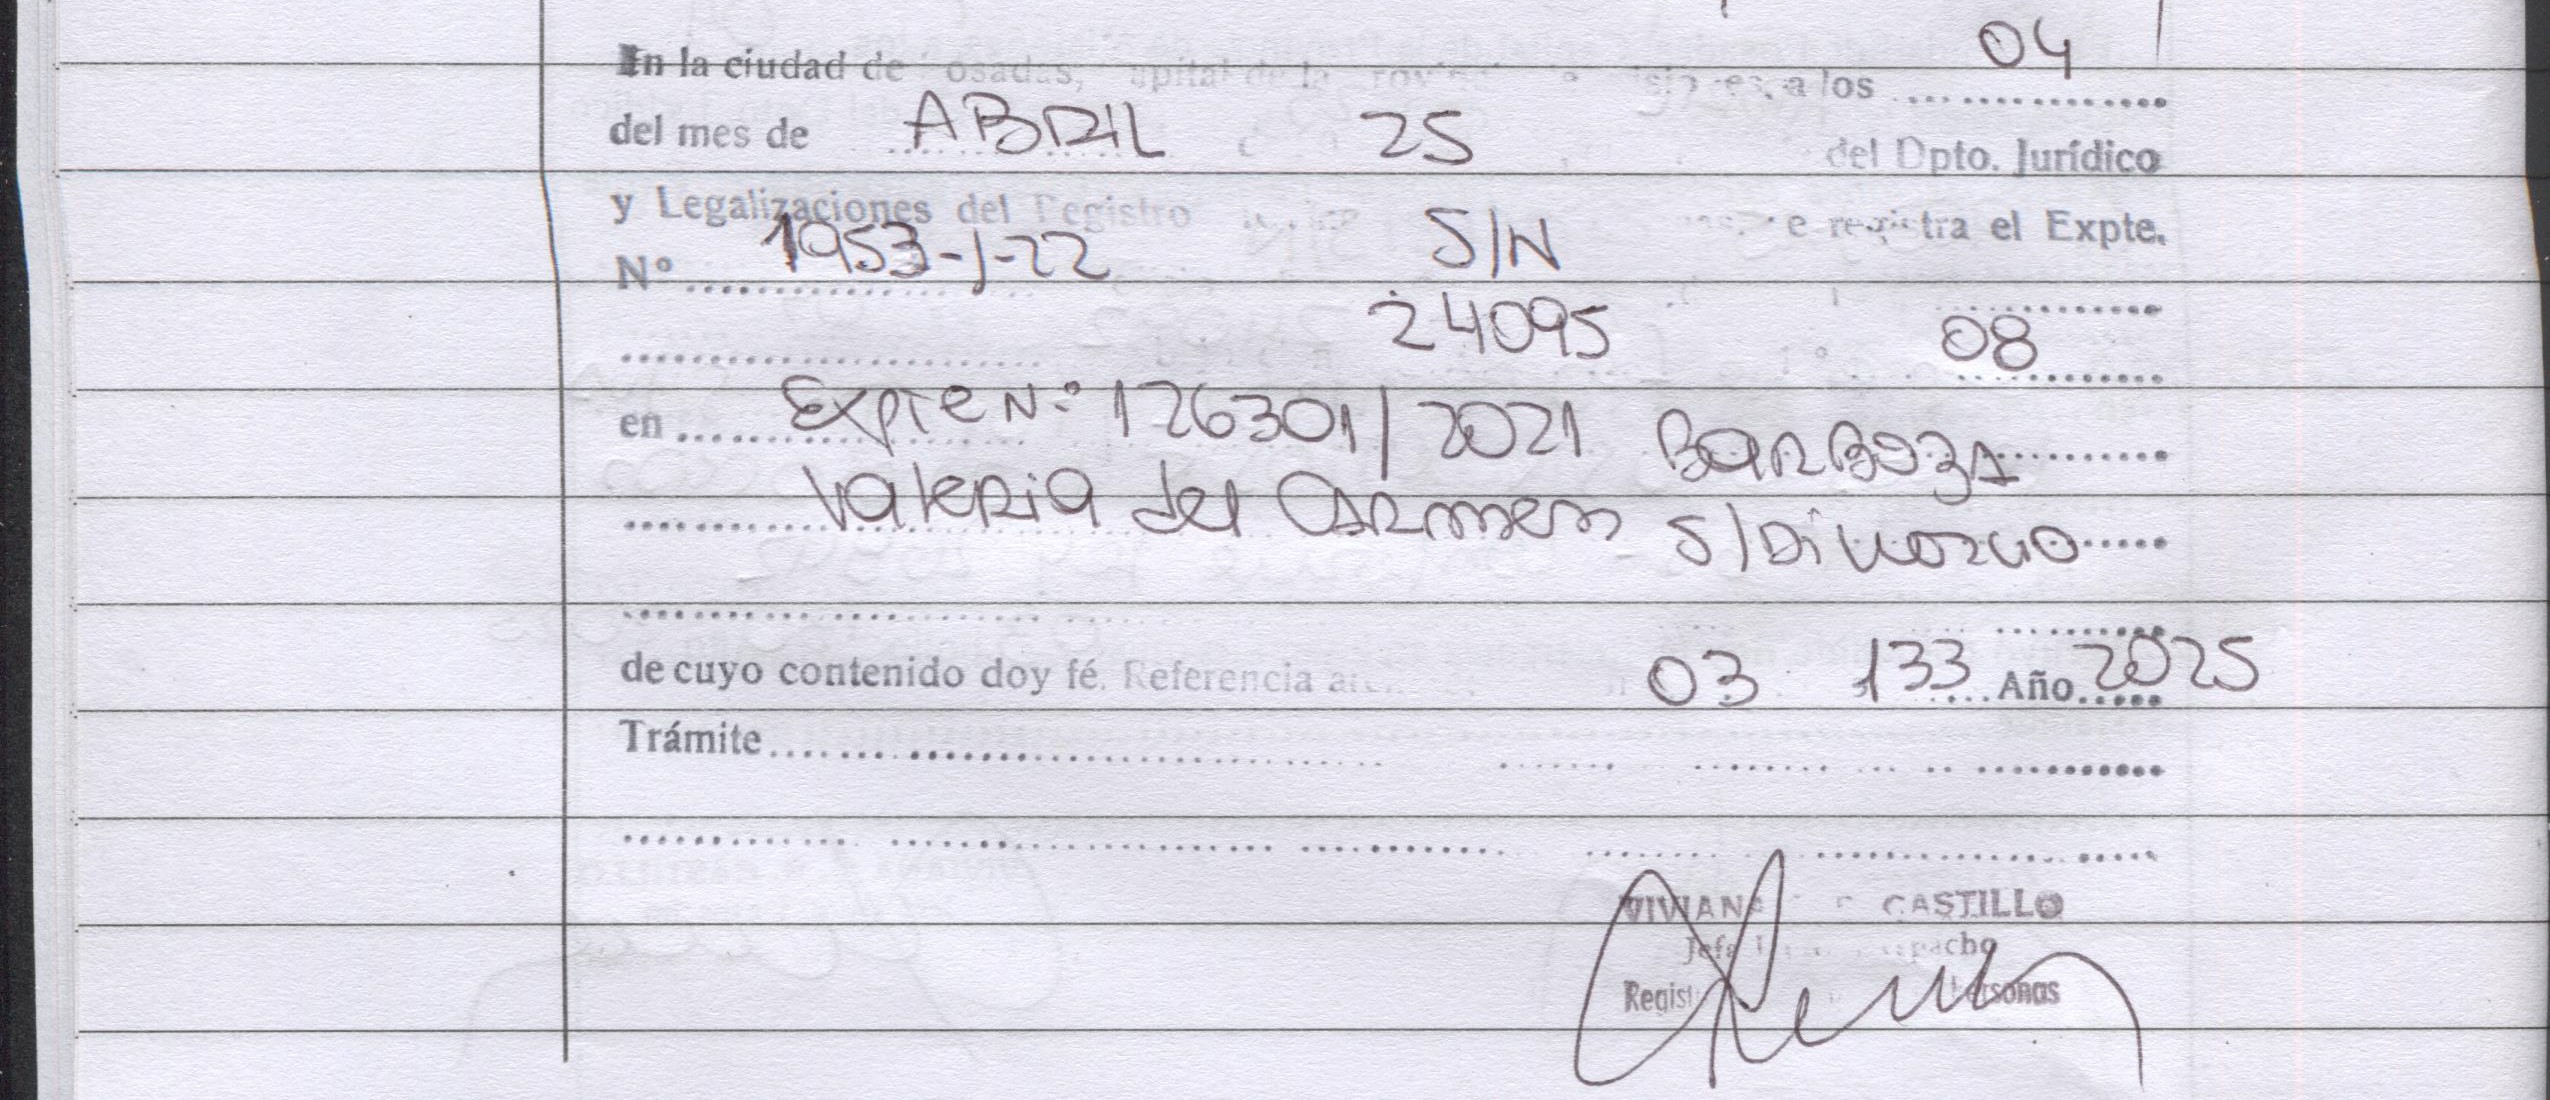 04
En la ciudad de Posadas, Capital de la Provincia de Misiones, a los ..............
del mes de ABRIL 25 del Dpto. Jurídico
y Legalizaciones del Registro se registra el Expte.
Nº 1953-J-22 S/N
24095 08
en Expte Nº 126301/2021 BARBOZA
Valeria del Carmen S/Divorcio
de cuyo contenido doy fé. Referencia 03 133 Año 2025
Trámite
VIVIANA CASTILLO
Jefa Despacho
Personas